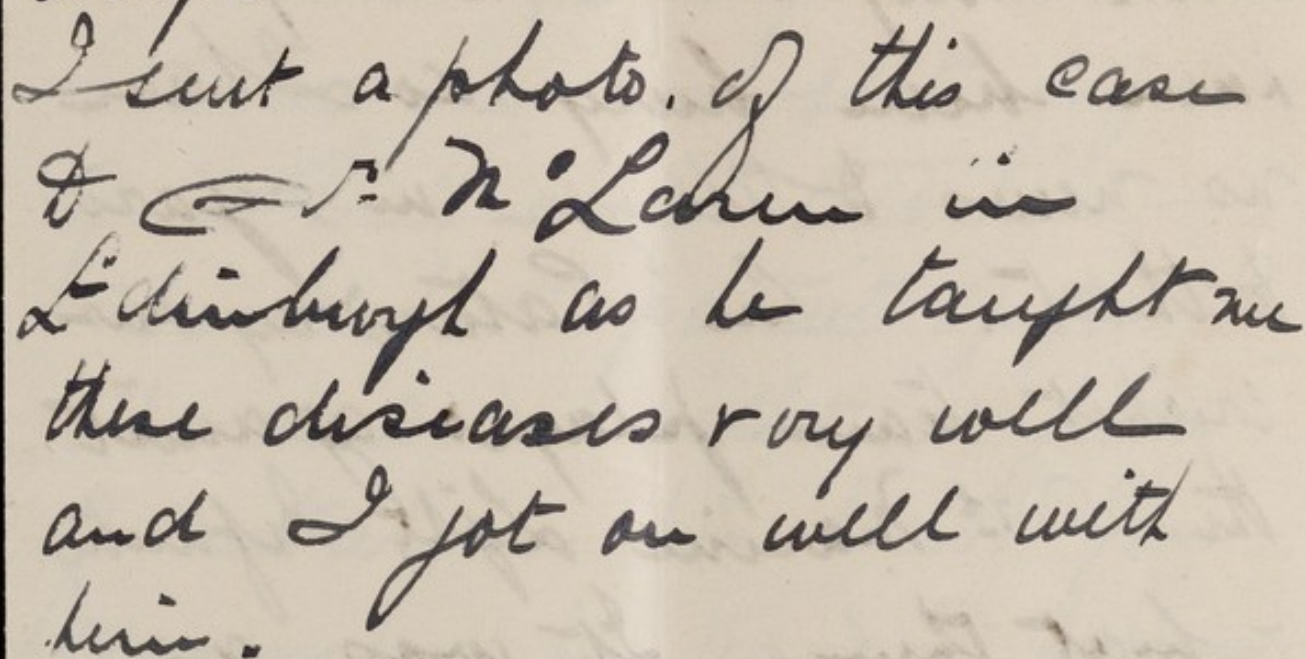 I sent a photo. of this case
to Dr. McLaren in
Edinburgh as he taught me
these diseases very well
and I got on well with
him.